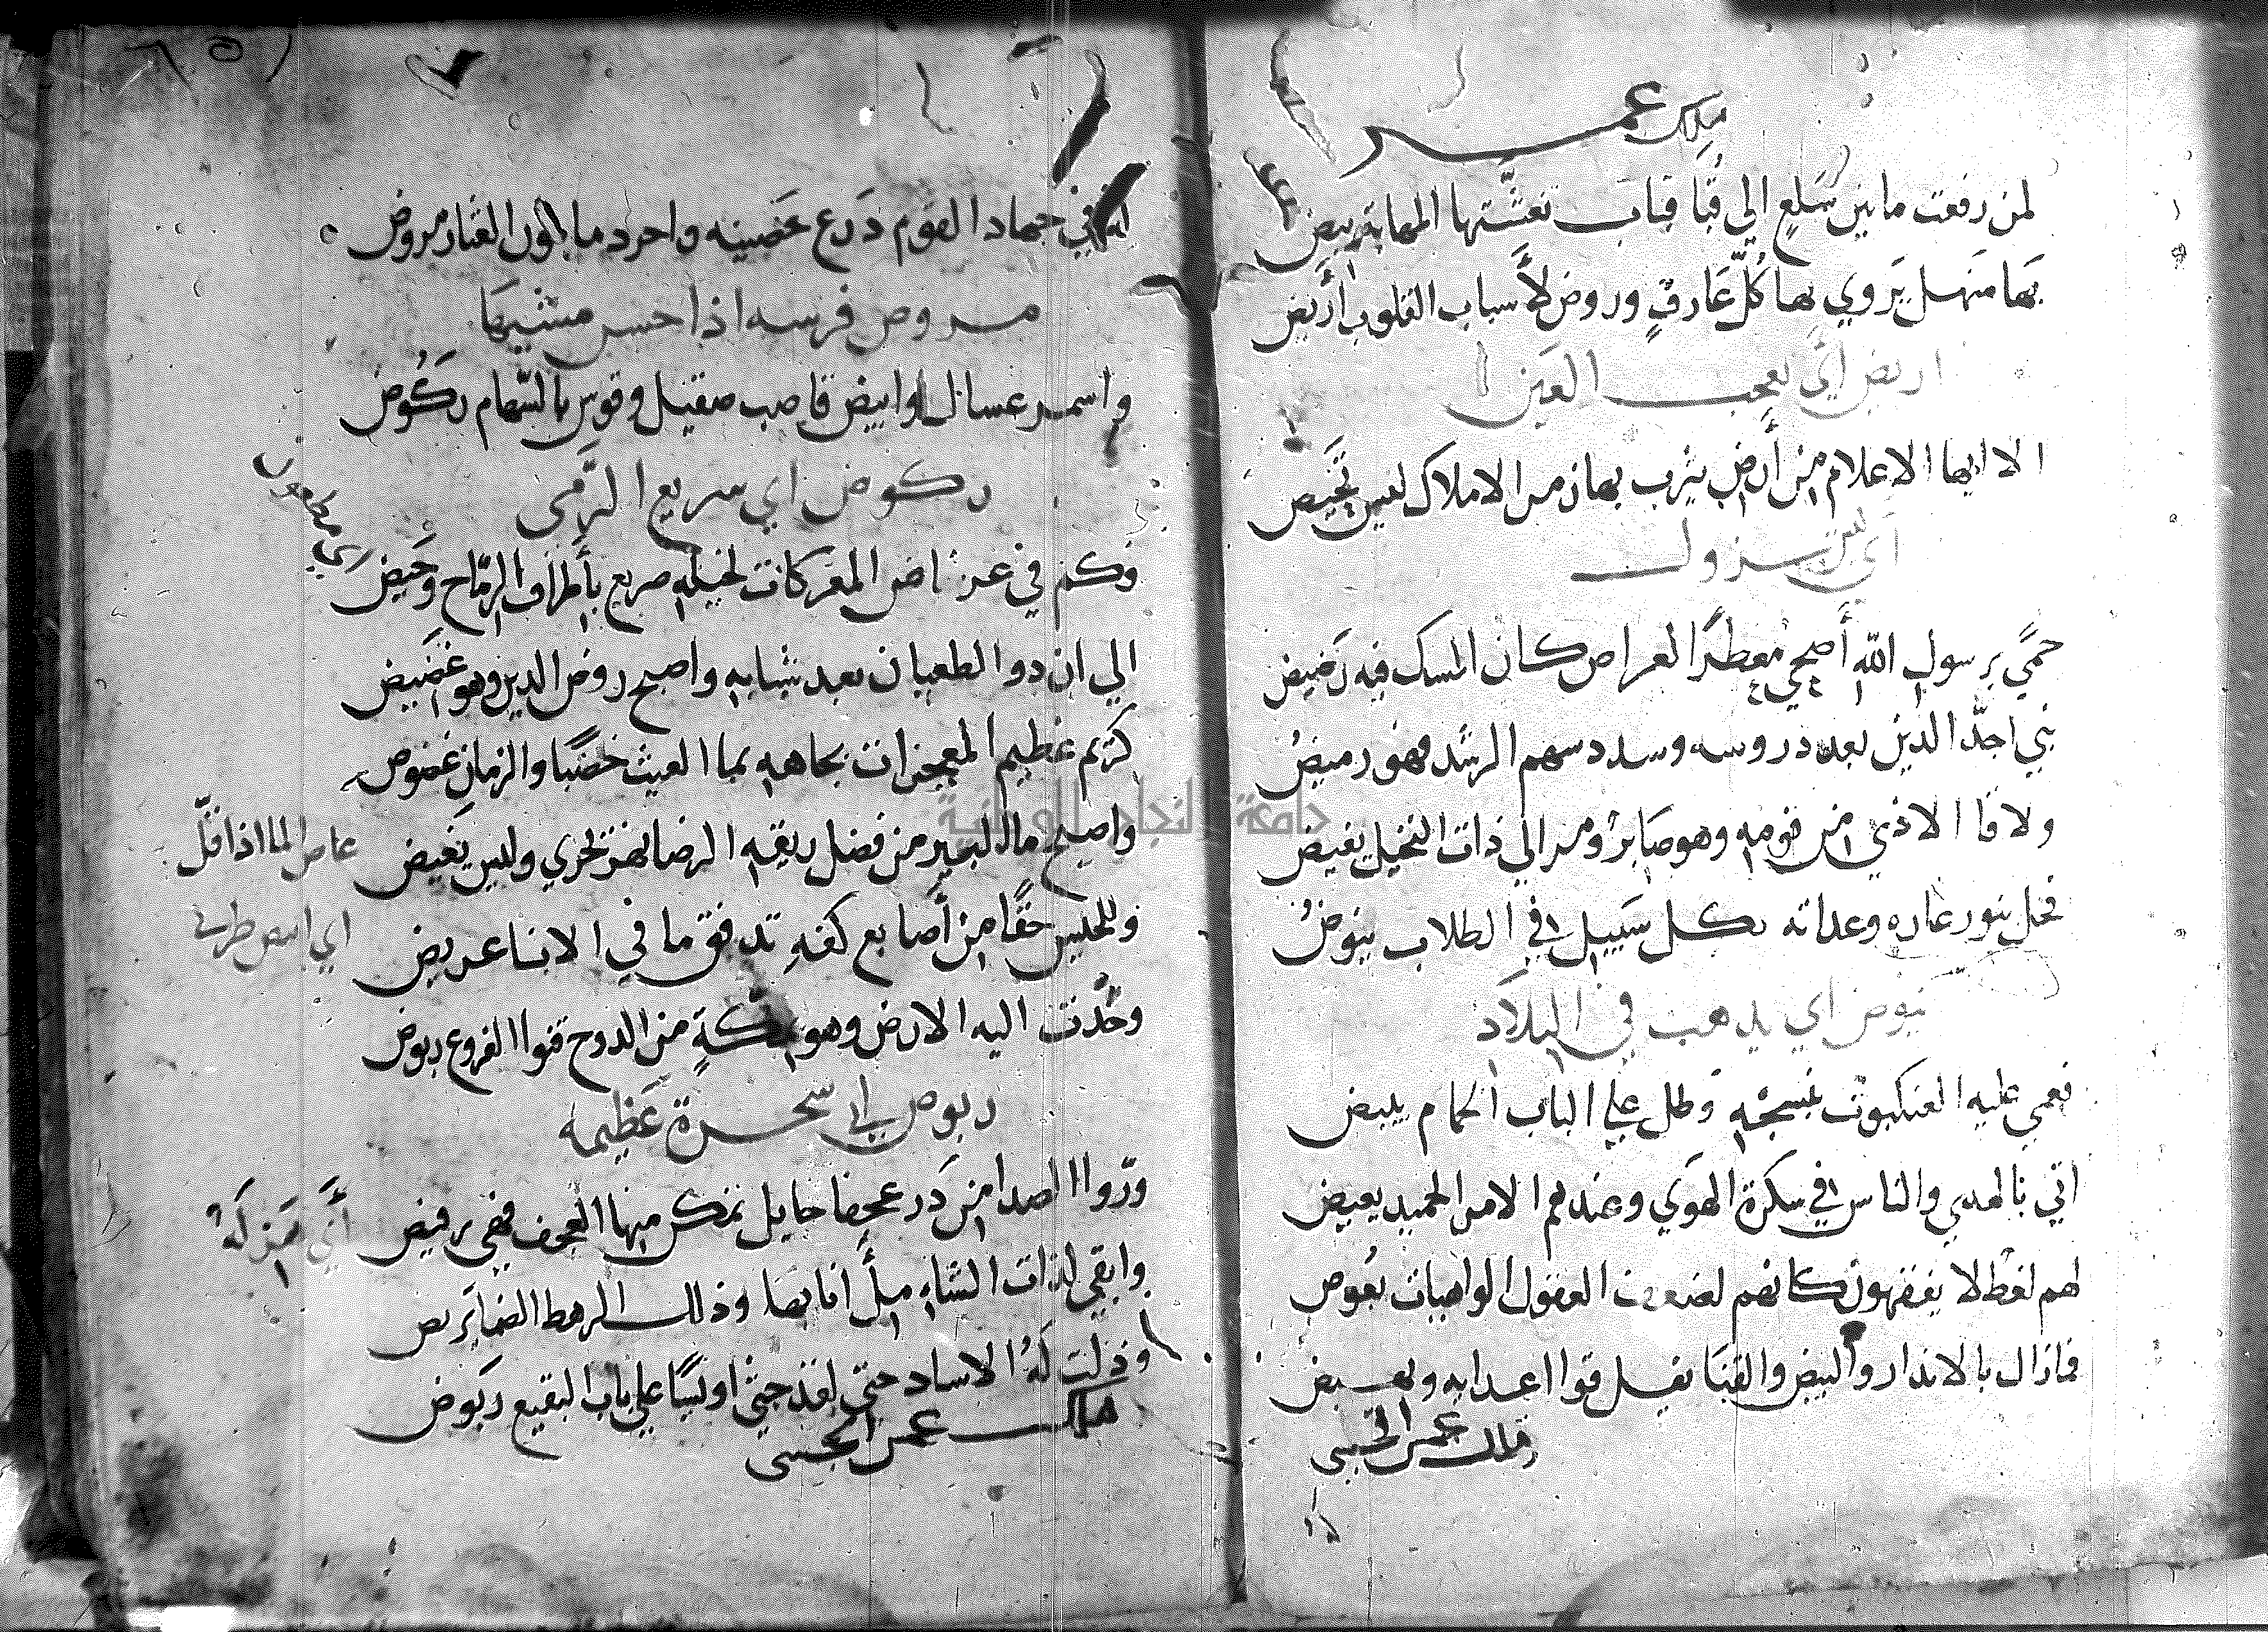 ملك عمر
لمن رفعت ما بين سَلعٍ الي قُبَا قباب تغشّتها المهابة بيض
بهَا مَنهل يَروي بها كُلّ عَارفٍ وروض لأسباب القلوب أريض
اريض أي يعجب العين
الا ايها الاعلام من أرض يثرب بها زمر الاملاك ليس تَحيص
أي ليس تزول
حمًي برسول الله أضحي معطرًا لعراص كان المسك فيه رَضيض
نبي اجدّ الدين بعد دروسه وسدد سهم الرشد فهو رميضُ
ولاقا الاذي من قومه وهو صَابر ومر الي ذات النخيل يغيض
فحل بثور غاره وعداته بكل سَبيل في الطلاب ينوضُ
ينوض أي يذهب في البلَاد
فعمي عليه العنكبوت بنسجه وظل علي الباب الحمام يبيض
اتي بالهدي والناس في سكرة الهوَي وعندهم الامر الحميد بعيض
لهم لغط لا يفقهون كانهم لضعف العقول الواهيات بعُوض
فمازال بالانذار والبيض والقَنَا يفل قوا اعدايه ويهيض
ملك عمر الحسيبي
له في جهاد القوم دَرع حَصينه واجرد ما بلون الغبار مروض
مروض فرسه اذا حسن مشيهَا
واسمر عسال وابيض قاصب صقيل وقوس بالسّهام ركُوض
ركوض اي سريع الرَّمي
وكم في عراض المعركات لخيله صريع بأطراف الرمّاح وَخيض
اي مطعون
الي ان ذوا الطغيان بعد شبابه واصبح روض الدين وهو غضَيض
كريم عظيم المعجزات بجاهه نما الغيث خصْبًا والزمان غضوض
واصبح ما البير من فضل ريقه الرضا نهر تجري وليس يَغيض
غاض الما اذا قلّ
وللجيش حقًا من أصابع كفه تدفق ما في الانا عريض
اي ابيض طري
وخُدّت اليه الارض وهو بمكةٍ من الدوح قنوا الفروع ربوض
ربوض اي شجرة عَظيمه
وروا الصدا من دَر عجفا حايل تمكن منها العجف فهي رفيض
أي مَتركَة
وابقي لذات الشاة مِلأ انابهَا وذلك الرهط الضما يَربض
وذلت لَهُ الاساد حتي لقد جثي اويسًا علي باب البقيع ركَوض
ملك عمر الحسيبي
جامعة النجاح الوطنية